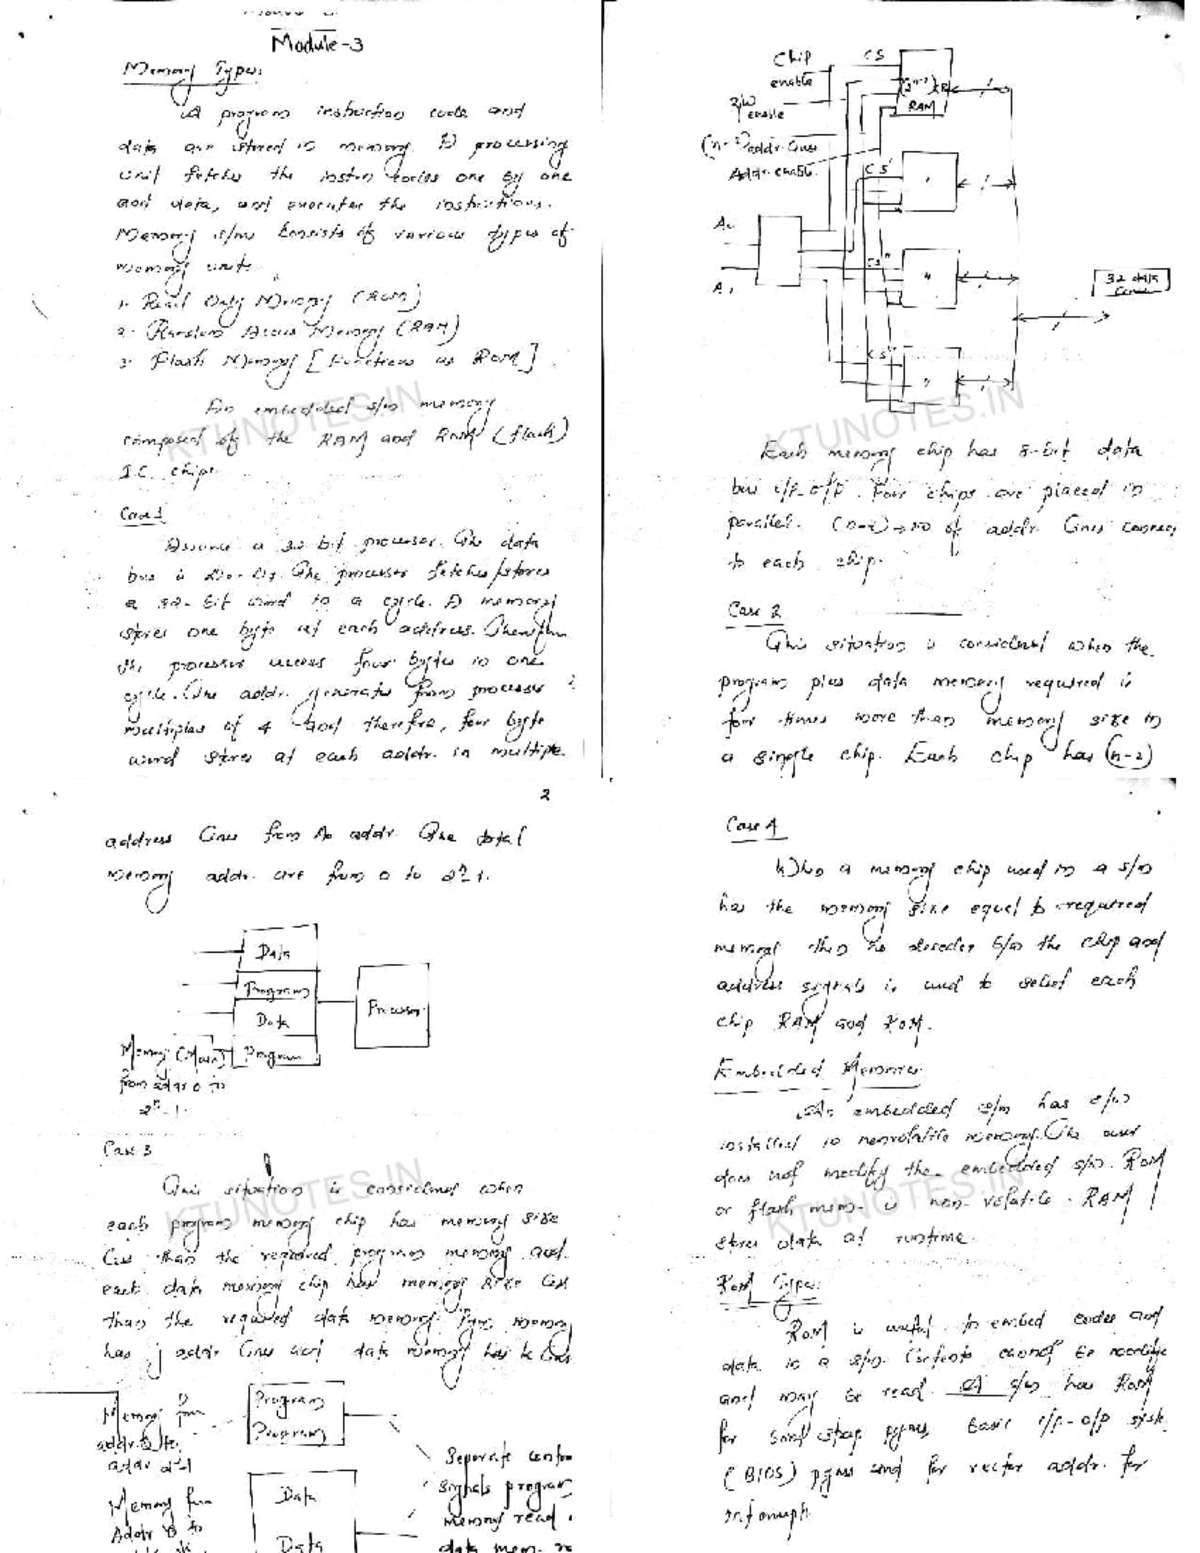 Module-3
Memory Types:
A program instruction code and
data are stored in memory. A processing
unit fetches the instrn codes one by one
and data, and executes the instructions.
Memory s/m consists of various types of
memory units
1. Read Only Memory (ROM)
2. Random Access Memory (RAM)
3. Flash Memory [Functions as ROM].
An embedded s/m memory
composed of the RAM and ROM (flash)
I.C. chips.
Case 1
Assume a 32 bit processor. The data
bus is The processor fetches/stores
a 32-bit word in a cycle. A memory
stores one byte at each address. Therefore
the processor access four bytes in one
cycle. The addr. generates from processor
multiples of 4 and therefore, four byte
word stores at each addr. in multiple
Chip
enable
CS
R/W
enable
RAM
addr. lines
Addr. enable
CS'
CS"
32 data
Each memory chip has 8-bit data
bus i/p-o/p. Four chips are placed in
parallel. (n-2) → no of addr. lines connec
to each chip.
Case 2
This situation is considered when the
program plus data memory required is
four times more than memory size in
a single chip. Each chip has (n-2)
2
address lines from An addr. The total
memory addr. are from 0 to 2ⁿ-1.
Data
Program
Data
Program
Processor
Memory (Main)
from addr 0 to
2ⁿ-1.
Case 3
This situation is considered when
each program memory chip has memory size
less than the required program memory and
each data memory chip has memory size less
than the required data memory. Pgm memory
has j addr lines and data memory has k lines
Memory from
addr 0 to
addr 2ʲ-1
Program
Program
Memory from
Addr 0 to
Data
Data
Separate contro
signals program
memory read
data mem.
Case 4
When a memory chip used in a s/m
has the memory size equal to required
memory then no decoder b/w the chip and
address signals is used to select each
chip RAM and ROM.
Embedded Memories
An embedded s/m has s/w
installed in nonvolatile memory. The user
does not modify the embedded s/w. ROM
or flash mem. is non-volatile. RAM
stores data at runtime.
ROM Types:
ROM is useful to embed codes and
data in a s/m. Contents cannot be modifie
and may be read. A s/m has ROM
for bootstrap pgms, basic i/p-o/p syste
(BIOS) pgms and for vector addr. for
interrupt
KTUNOTES.IN
KTUNOTES.IN
KTUNOTES.IN
KTUNOTES.IN